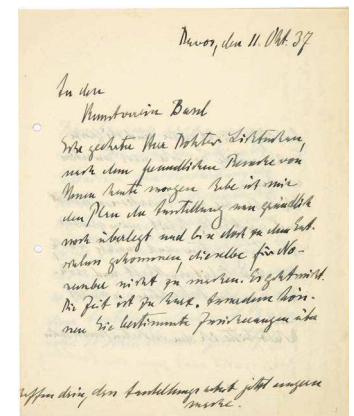 Davos, den 11. Okt. 37
An den
Kunstverein Basel
Sehr geehrter Herr Doktor Lichtenhan,
nach dem freundlichen Besuche von
Ihnen heute morgen habe ich mir
den Plan der Ausstellung nun gründlich
noch überlegt und bin doch zu dem Ent-
schluss gekommen, dieselbe für No-
vember nicht zu machen. Es geht nicht.
Die Zeit ist zu kurz. Trotzdem kön-
nen Sie bestimmte Zeichnungen